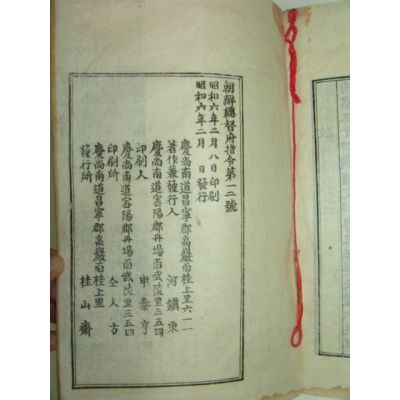 朝鮮總督府指令第一二號
昭和六年二月八日印刷
昭和六年二月 日發行
慶尚南道昌寧郡高巖面桂上里六一一
著作兼發行人 河鎭東
慶尚南道密陽郡丹場面武陵里三五四
印刷人 申泰亨
慶尚南道密陽郡丹場面武陵里三五四
印刷所 仝人方
慶尚南道昌寧郡高巖面桂上里
發行所 桂山齋